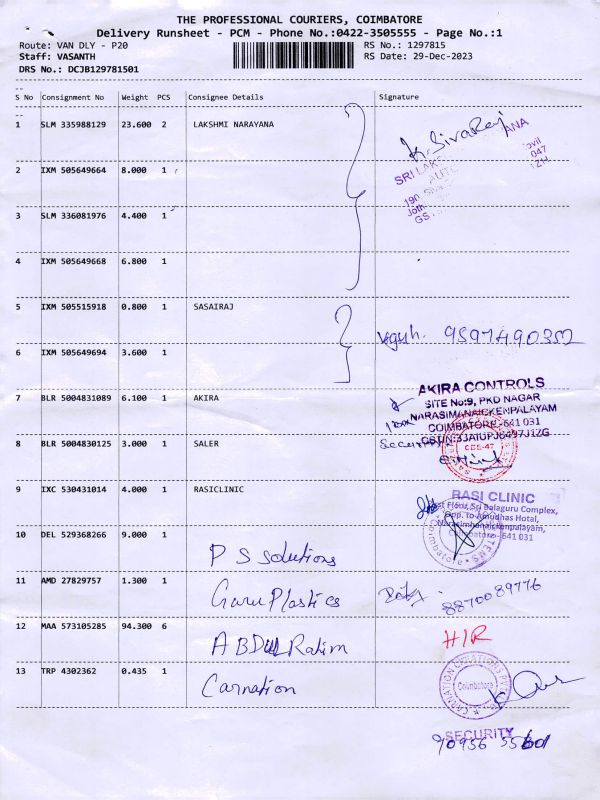 THE PROFESSIONAL COURIERS, COIMBATORE
Delivery Runsheet - PCM - Phone No.:0422-3505555 - Page No.:1
Route: VAN DLY - P20 RS No.: 1297815
Staff: VASANTH RS Date: 29-Dec-2023
DRS No.: DCJB129781501
S No Consignment No Weight PCS Consignee Details Signature
1 SLM 335988129 23.600 2 LAKSHMI NARAYANA K. SivaRaj
SRI
2 IXM 505649664 8.000 1
3 SLM 336081976 4.400 1
4 IXM 505649668 6.800 1
5 IXM 505515918 0.800 1 SASAIRAJ
6 IXM 505649694 3.600 1
7 BLR 5004831089 6.100 1 AKIRA AKIRA CONTROLS
SITE No:9, PKD NAGAR
NARASIMANAICKENPALAYAM
COIMBATORE - 641 031
8 BLR 5004830125 3.000 1 SALER
9 IXC 530431014 4.000 1 RASICLINIC RASI CLINIC
Sri Balaguru Complex,
Opp. to Amudhas Hotal,
Narasimhanaickenpalayam,
Coimbatore - 641 031
10 DEL 529368266 9.000 1 P S Solutions
11 AMD 27829757 1.300 1 Guru Plastics 8870089776
12 MAA 573105285 94.300 6 ABDUL Rahim HIR
13 TRP 4302362 0.435 1 Carnation CARNATION CREATIONS PVT
Coimbatore
SECURITY